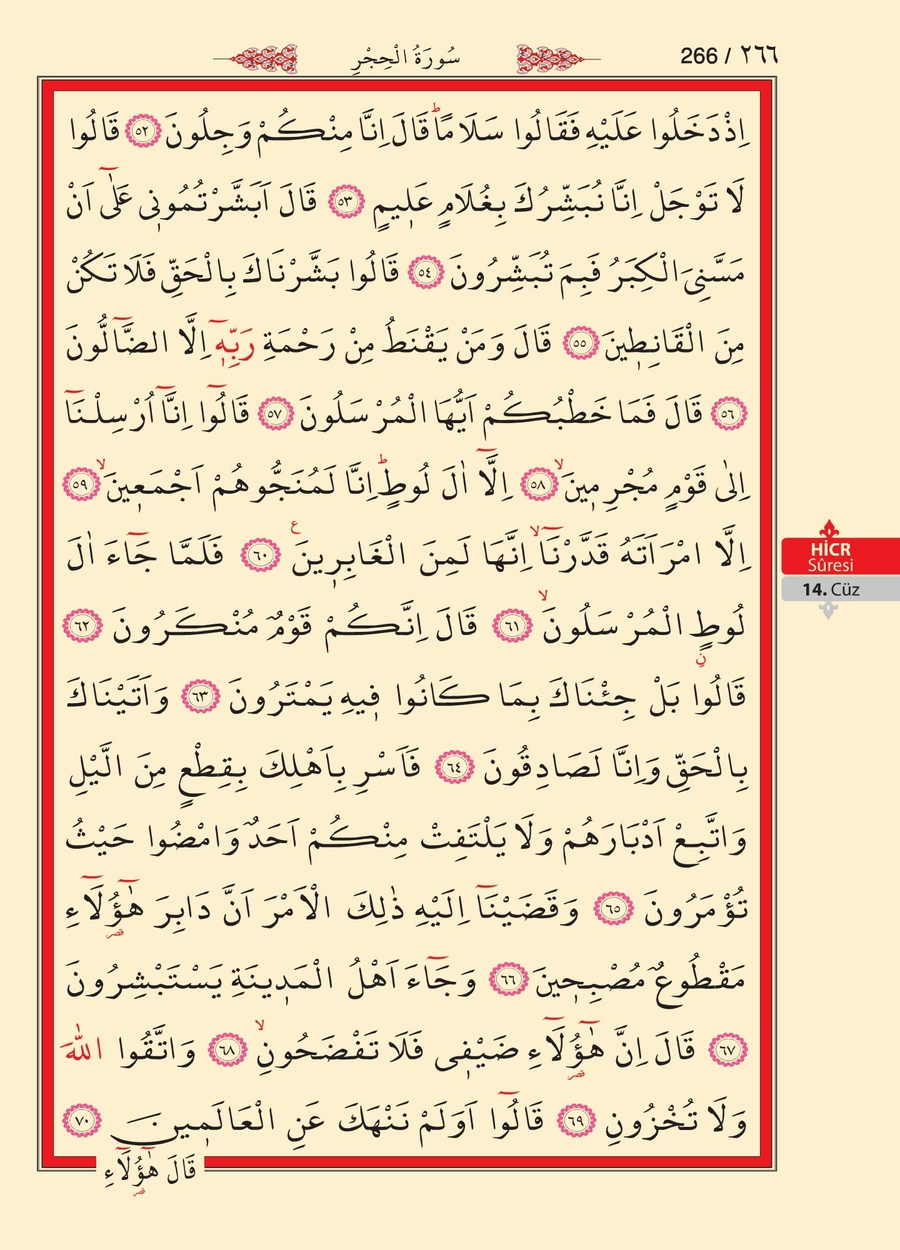 266 / ٢٦٦
سُورَةُ الْحِجْرِ
اِذْ دَخَلُوا عَلَيْهِ فَقَالُوا سَلَامًاۜ قَالَ اِنَّا مِنْكُمْ وَجِلُونَ ﴿٥٢﴾ قَالُوا
لَا تَوْجَلْ اِنَّا نُبَشِّرُكَ بِغُلَامٍ عَل۪يمٍ ﴿٥٣﴾ قَالَ اَبَشَّرْتُمُون۪ي عَلٰٓى اَنْ
مَسَّنِيَ الْكِبَرُ فَبِمَ تُبَشِّرُونَ ﴿٥٤﴾ قَالُوا بَشَّرْنَاكَ بِالْحَقِّ فَلَا تَكُنْ
مِنَ الْقَانِط۪ينَ ﴿٥٥﴾ قَالَ وَمَنْ يَقْنَطُ مِنْ رَحْمَةِ رَبِّه۪ٓ اِلَّا الضَّٓالُّونَ
﴿٥٦﴾ قَالَ فَمَا خَطْبُكُمْ اَيُّهَا الْمُرْسَلُونَ ﴿٥٧﴾ قَالُٓوا اِنَّٓا اُرْسِلْنَٓا
اِلٰى قَوْمٍ مُجْرِم۪ينَۙ ﴿٥٨﴾ اِلَّٓا اٰلَ لُوطٍۜ اِنَّا لَمُنَجُّوهُمْ اَجْمَع۪ينَۙ ﴿٥٩﴾
اِلَّا امْرَاَتَهُ قَدَّرْنَٓاۙ اِنَّهَا لَمِنَ الْغَابِر۪ينَ۟ ﴿٦٠﴾ فَلَمَّا جَٓاءَ اٰلَ
لُوطٍ الْمُرْسَلُونَۙ ﴿٦١﴾ قَالَ اِنَّكُمْ قَوْمٌ مُنْكَرُونَ ﴿٦٢﴾
قَالُوا بَلْ جِئْنَاكَ بِمَا كَانُوا ف۪يهِ يَمْتَرُونَ ﴿٦٣﴾ وَاَتَيْنَاكَ
بِالْحَقِّ وَاِنَّا لَصَادِقُونَ ﴿٦٤﴾ فَاَسْرِ بِاَهْلِكَ بِقِطْعٍ مِنَ الَّيْلِ
وَاتَّبِعْ اَدْبَارَهُمْ وَلَا يَلْتَفِتْ مِنْكُمْ اَحَدٌ وَامْضُوا حَيْثُ
تُؤْمَرُونَ ﴿٦٥﴾ وَقَضَيْنَٓا اِلَيْهِ ذٰلِكَ الْاَمْرَ اَنَّ دَابِرَ هٰٓؤُ۬لَٓاءِ
مَقْطُوعٌ مُصْبِح۪ينَ ﴿٦٦﴾ وَجَٓاءَ اَهْلُ الْمَد۪ينَةِ يَسْتَبْشِرُونَ
﴿٦٧﴾ قَالَ اِنَّ هٰٓؤُ۬لَٓاءِ ضَيْف۪ي فَلَا تَفْضَحُونِۙ ﴿٦٨﴾ وَاتَّقُوا اللّٰهَ
وَلَا تُخْزُونِ ﴿٦٩﴾ قَالُٓوا اَوَلَمْ نَنْهَكَ عَنِ الْعَالَم۪ينَ ﴿٧٠﴾
قَالَ هٰٓؤُ۬لَٓاءِ
HİCR
Sûresi
14. Cüz